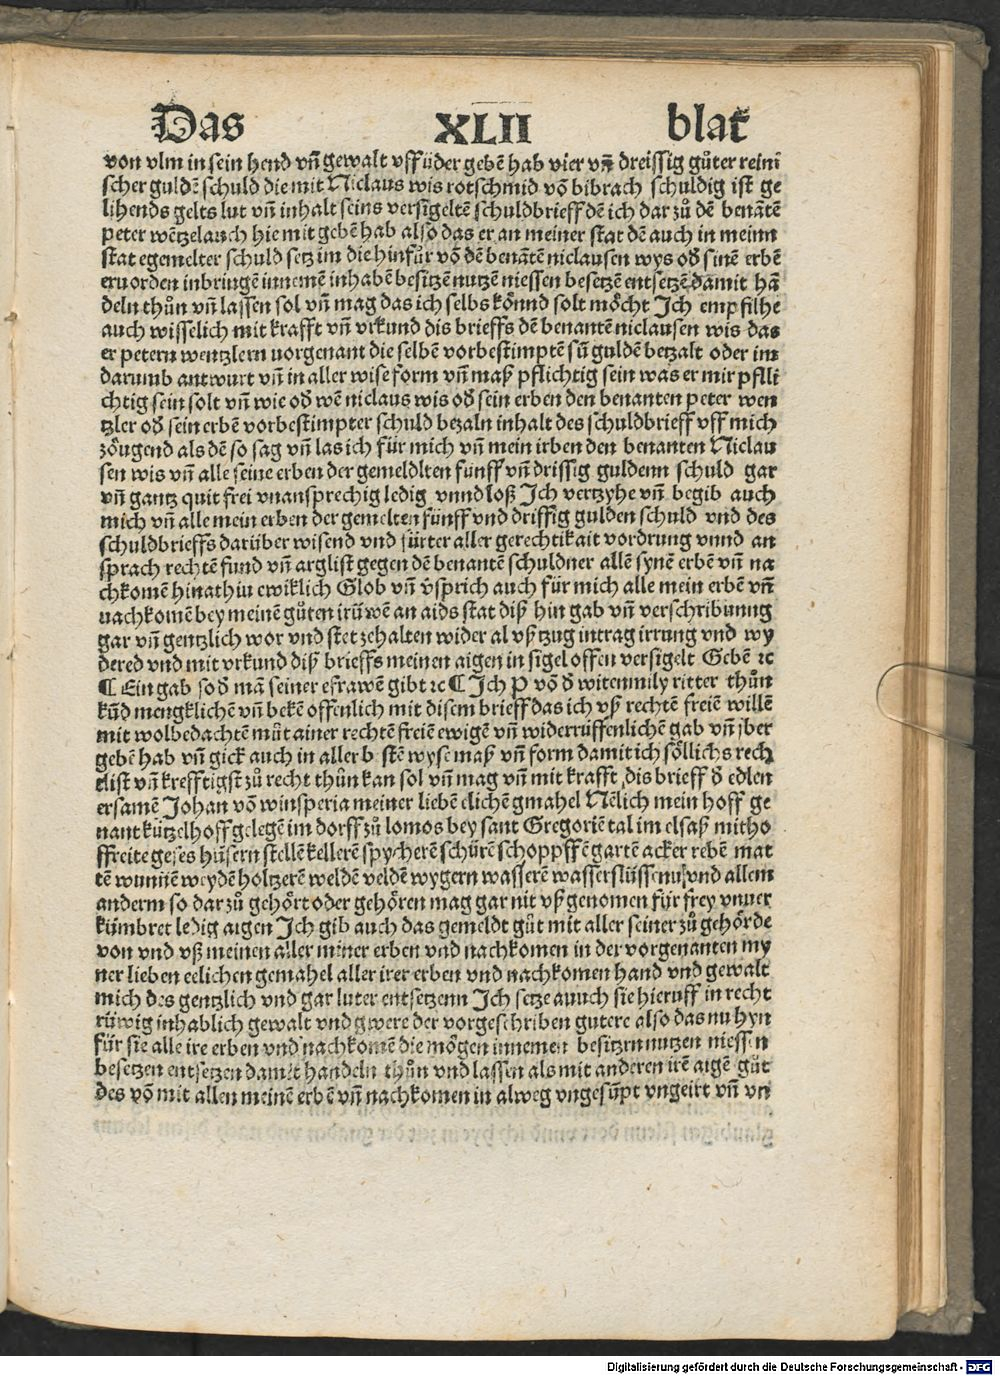 Das XLII blat
von vlm in sein hend vñ gewalt vff üder gebē hab vier vñ dreissig gůter reini
scher guldē schuld die mit Niclaus wis rotschmid vō bibrach schuldig ist ge
lihends gelts lut vñ inhalt seins versigeltē schuldbrieff dē ich dar zů dē benātē
peter wētzel auch hie mit gebē hab also das er an meiner stat dē auch in meinn
stat egemelter schuld setz im die hinfůr vō dē benātē niclausen wys oď sinē erbē
eruorden inbringē innemē inhabē besitzē nutzē niessen besetzē entsetzē damit hā
deln thůn vñ lassen sol vñ mag das ich selbs kőnnd solt mőcht Ich empfilhe
auch wisselich mit krafft vñ vrkund dis brieffs dē benantē niclausen wis das
er petern wentzlern uorgenant die selbē vorbestimptē sũ guldē betzalt oder im
darumb antwurt vñ in aller wise form vñ maß pflichtig sein was er mir pflli
chtig sein solt vñ wie oď wē niclaus wis oď sein erben den benanten peter wen
tzler oď sein erbē vorbestimpter schuld bezaln inhalt des schuldbrieff vff mich
zőugend als dē so sag vñ las ich für mich vñ mein irben den benanten Niclau
sen wis vñ alle seine erben der gemeldlten fünff vñ drissig guldenn schuld gar
vñ gantz quit frei vnansprechig ledig vnnd loß Ich vertzyhe vñ begib auch
mich vñ alle mein erben der gemelten fünff vnd driffig gulden schuld vnd des
schuldbrieffs darüber wisend vnd fürter aller gerechtikait vordrung vnnd an
sprach rechtē fund vñ arglist gegen dē benantē schuldner allē synē erbē vñ na
chkomē hinathin ewiklich Glob vñ v̉sprich auch für mich alle mein erbē vñ
nachkomē bey meinē gůten trüwē an aids stat diß hin gab vñ verschribunng
gar vñ gentzlich wor vnd stet zehalten wider al vßtzug intrag irrung vnd wy
dered vnd mit vrkund diß brieffs meinen aigen in sigel offen versigelt Gebē ⁊c
¶ Ein gab so ď mā seiner efrawē gibt ⁊c ¶ Ich P vō ď witenmily ritter thůn
kũd mengklichē vñ bekē offenlich mit disem brieff das ich vß rechtē freiē willē
mit wolbedachtē můt ainer rechtē freiē ewigē vñ widerrüffenlichē gab vñ jber
gebē hab vñ gick auch in aller b stē wyse maß vñ form damit ich sőllichs rech
elist vñ krefftigst zů recht thůn kan sol vñ mag vñ mit krafft dis brieff ď edlen
ersamē Johan vō winsperia meiner liebē elichē gmahel Nēlich mein hoff ge
nant kützelhoff gelegē im dorff zů lomos bey sant Gregoriē tal im elsaß mit ho
ffreite geses hüsern stellē kellerē spycherē schürē schoppffē gartē acker rebē mat
tē wunnē weydē holtzerē weldē veldē wygern wasserē wasserslüssenus vnd allem
anderm so dar zů gehőrt oder gehőren mag gar nit vß genomen für frey vnuer
kümbret ledig aigen Ich gib auch das gemeldt gůt mit aller seiner zů gehőrde
von vnd vß meinen aller miner erben vnd nachkomen in der vorgenanten my
ner lieben eelichen gemahel aller irer erben vnd nachkomen hand vnd gewalt
mich des gentzlich vnd gar luter entsetzenn Ich setze auuch sie hieruff in recht
rüwig inhablich gewalt vnd gwere der vorgeschriben gutere also das nu hyn
für sie alle ire erben vnd nachkomē die mőgen innemen besitzrn nutzen niessen
besetzen entsetzen damit handeln thůn vnd lassen als mit anderen irē aigē gůt
des vō mit allen meinē erbē vñ nachkomen in alweg vngesũpt vngeirt vñ vn
Digitalisierung gefördert durch die Deutsche Forschungsgemeinschaft - DFG